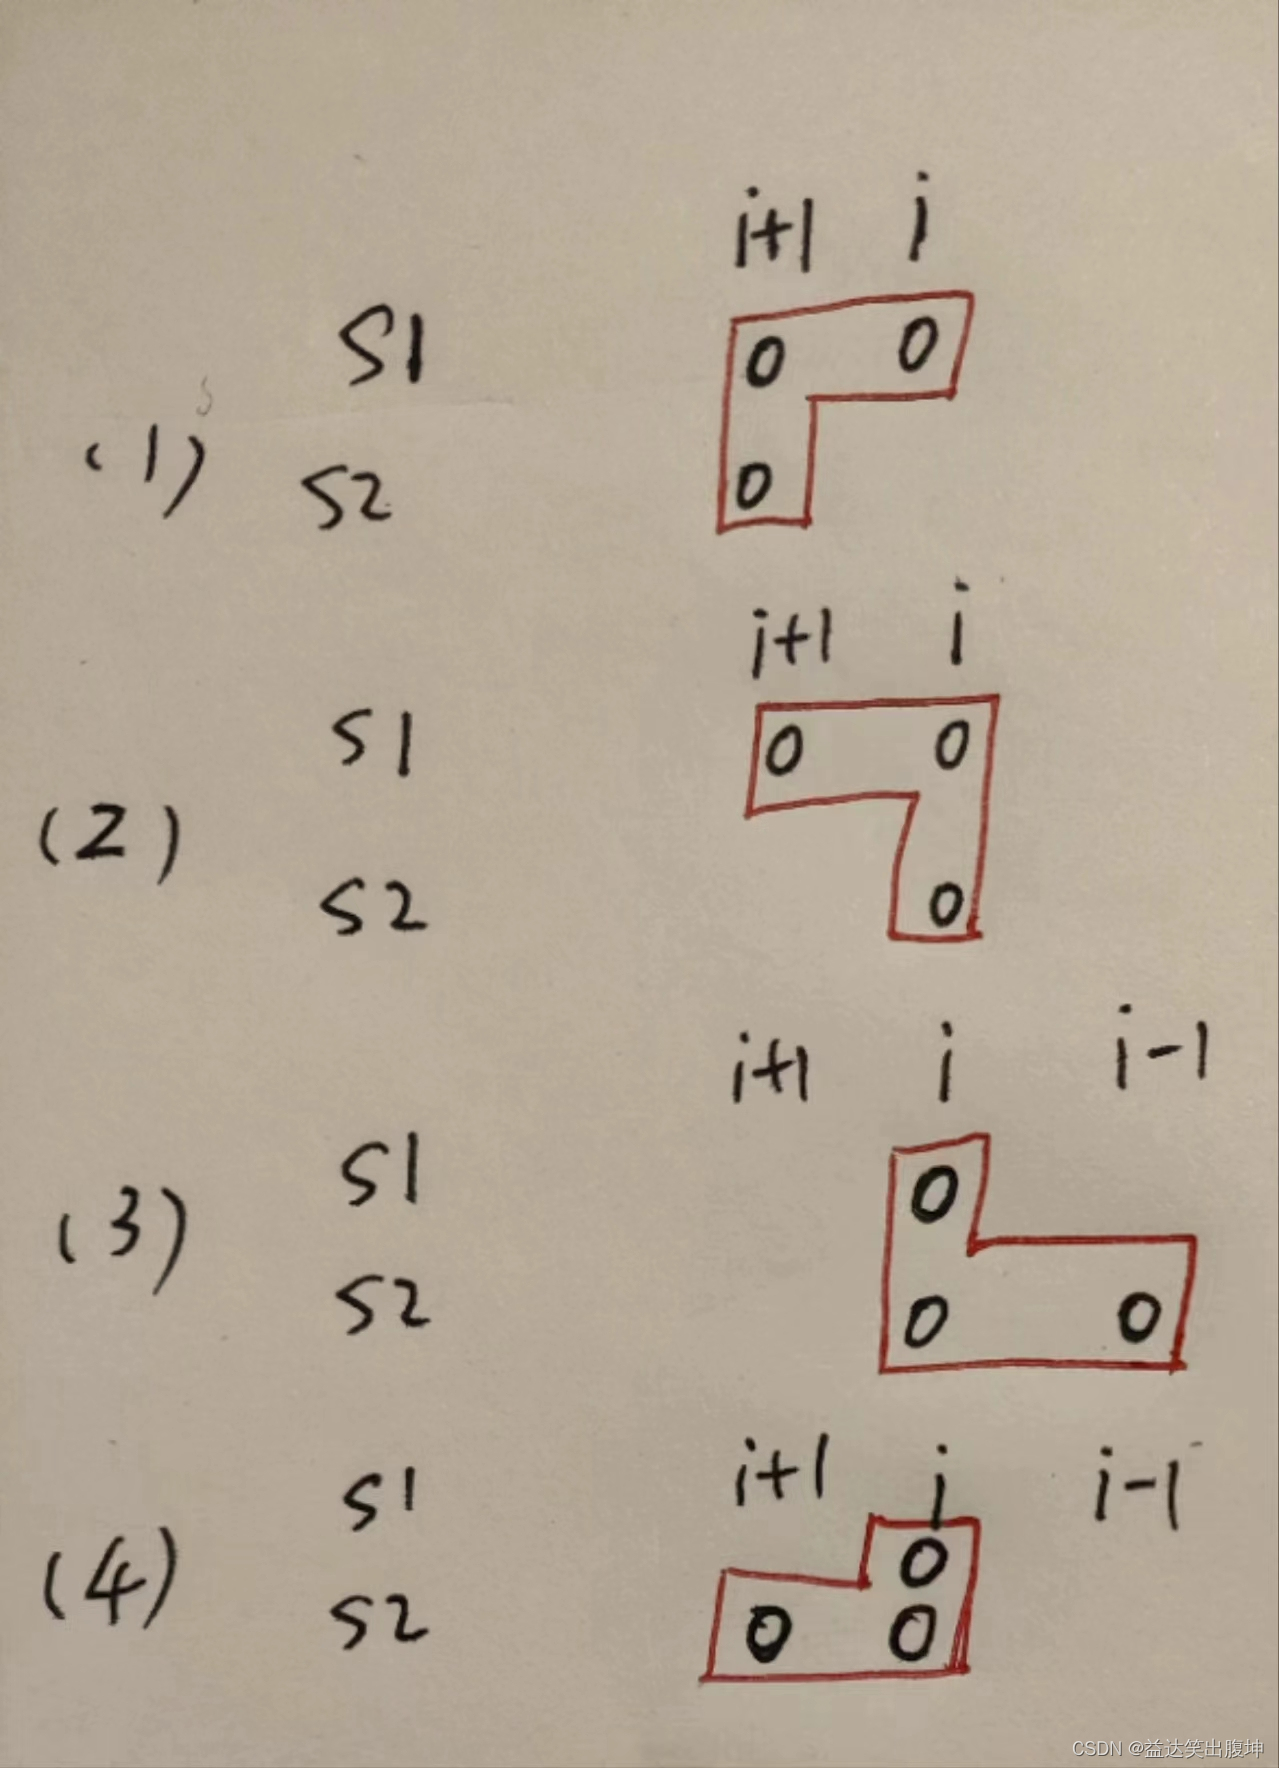 i+1 i
S1 0 0
(1)
S2 0
i+1 i
S1 0 0
(2)
S2 0
i+1 i i-1
S1 0
(3)
S2 0 0
i+1 i i-1
S1 0
(4)
S2 0 0
CSDN @益达笑出腹坤